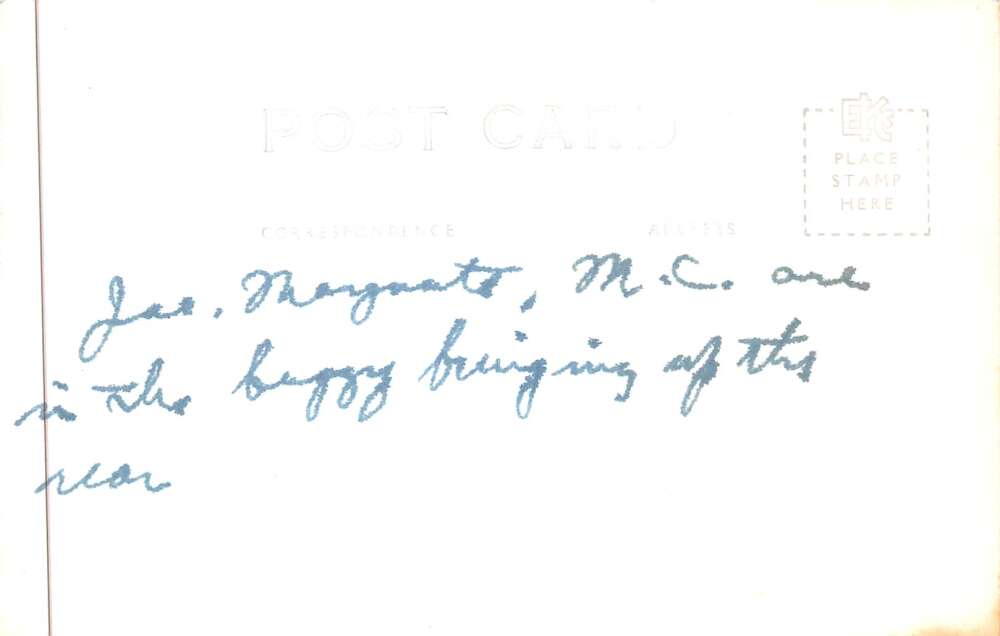 POST CARD
EKC
PLACE
STAMP
HERE
CORRESPONDENCE ADDRESS
Jas. M.C. are
in the buggy bringing up the
rear